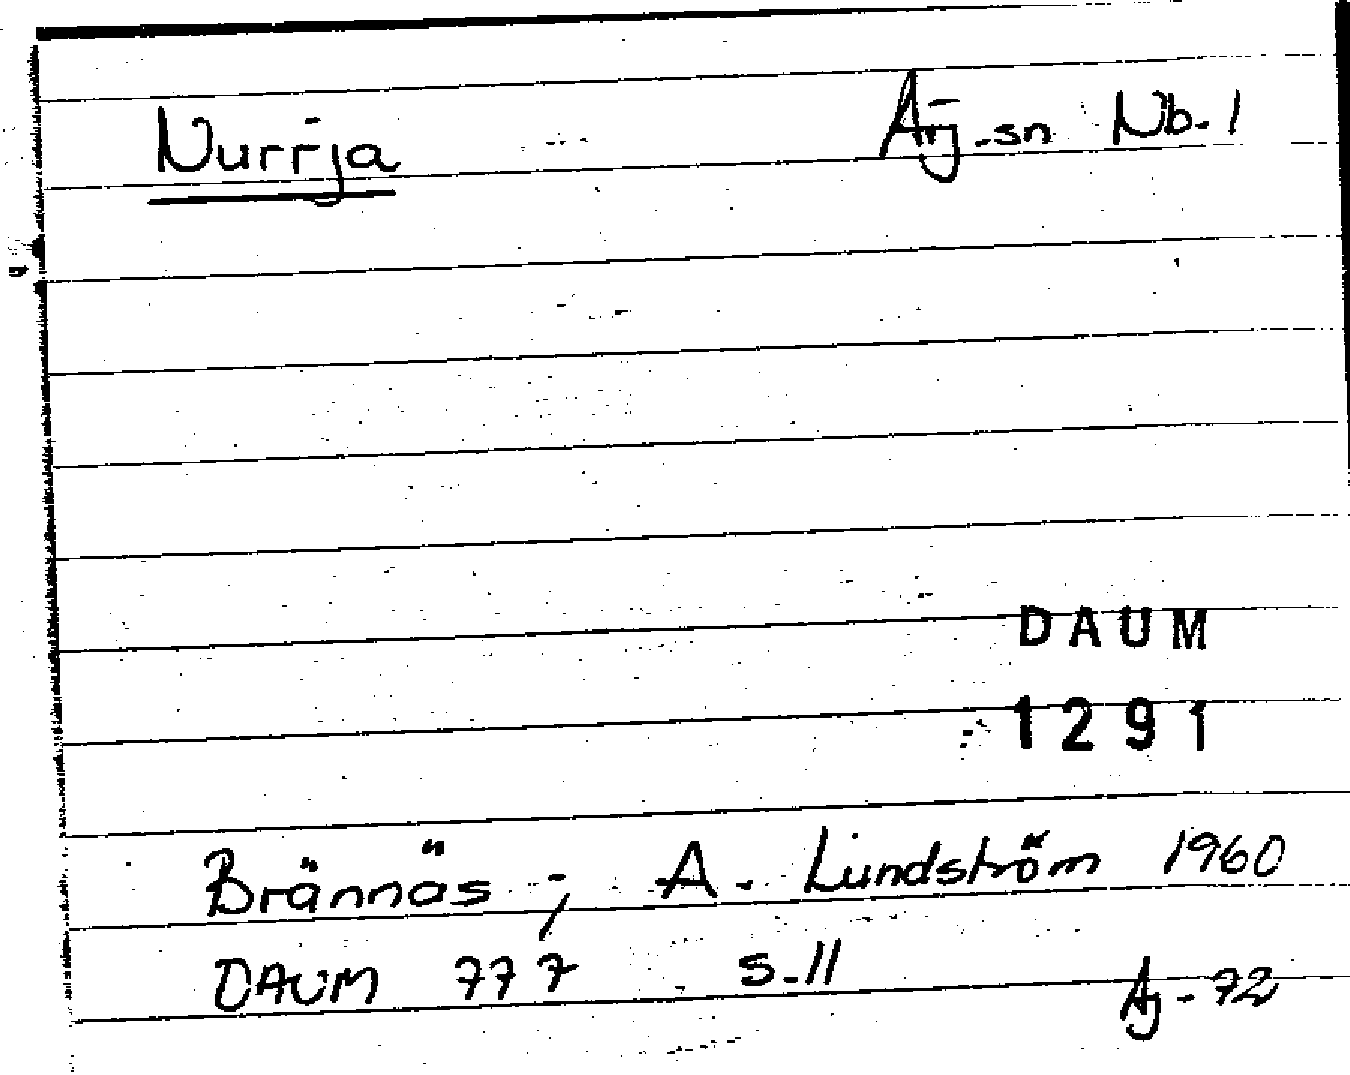 Nurrja Arj.-sn Nb. 1
DAUM
1291
Brännäs ; A. Lundström 1960
DAUM 777 s. 11
Aj-72